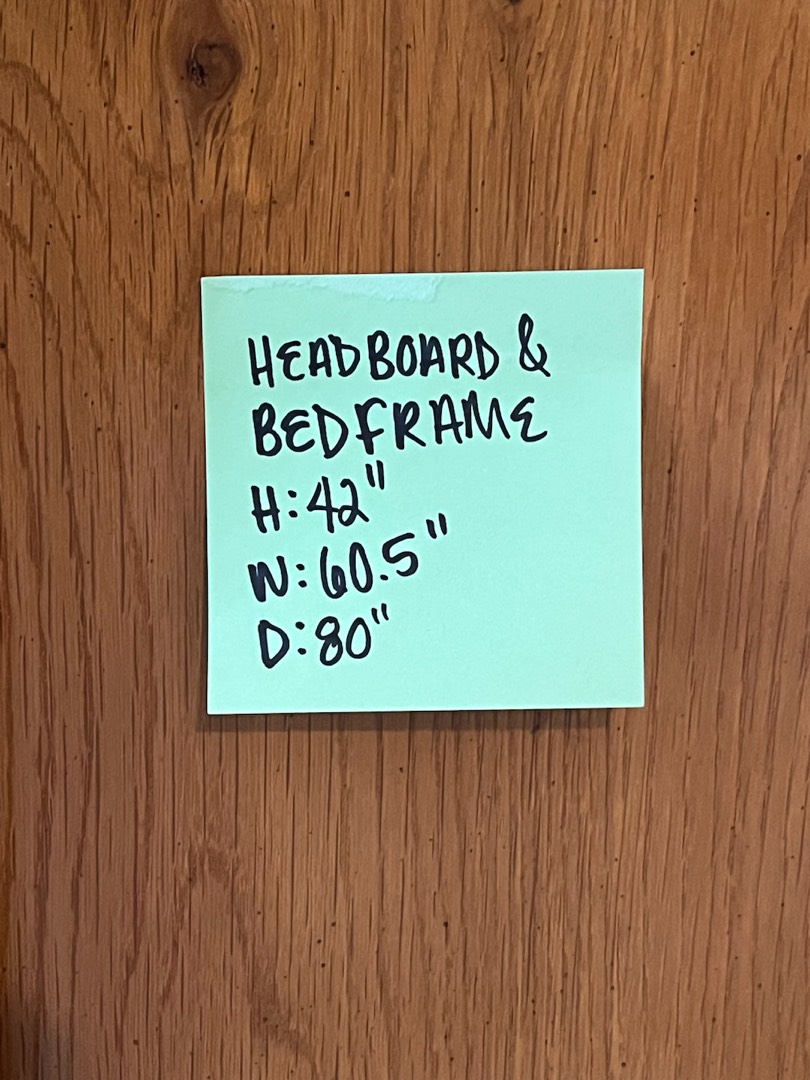 HEADBOARD &
BEDFRAME
H: 42"
W: 60.5"
D: 80"